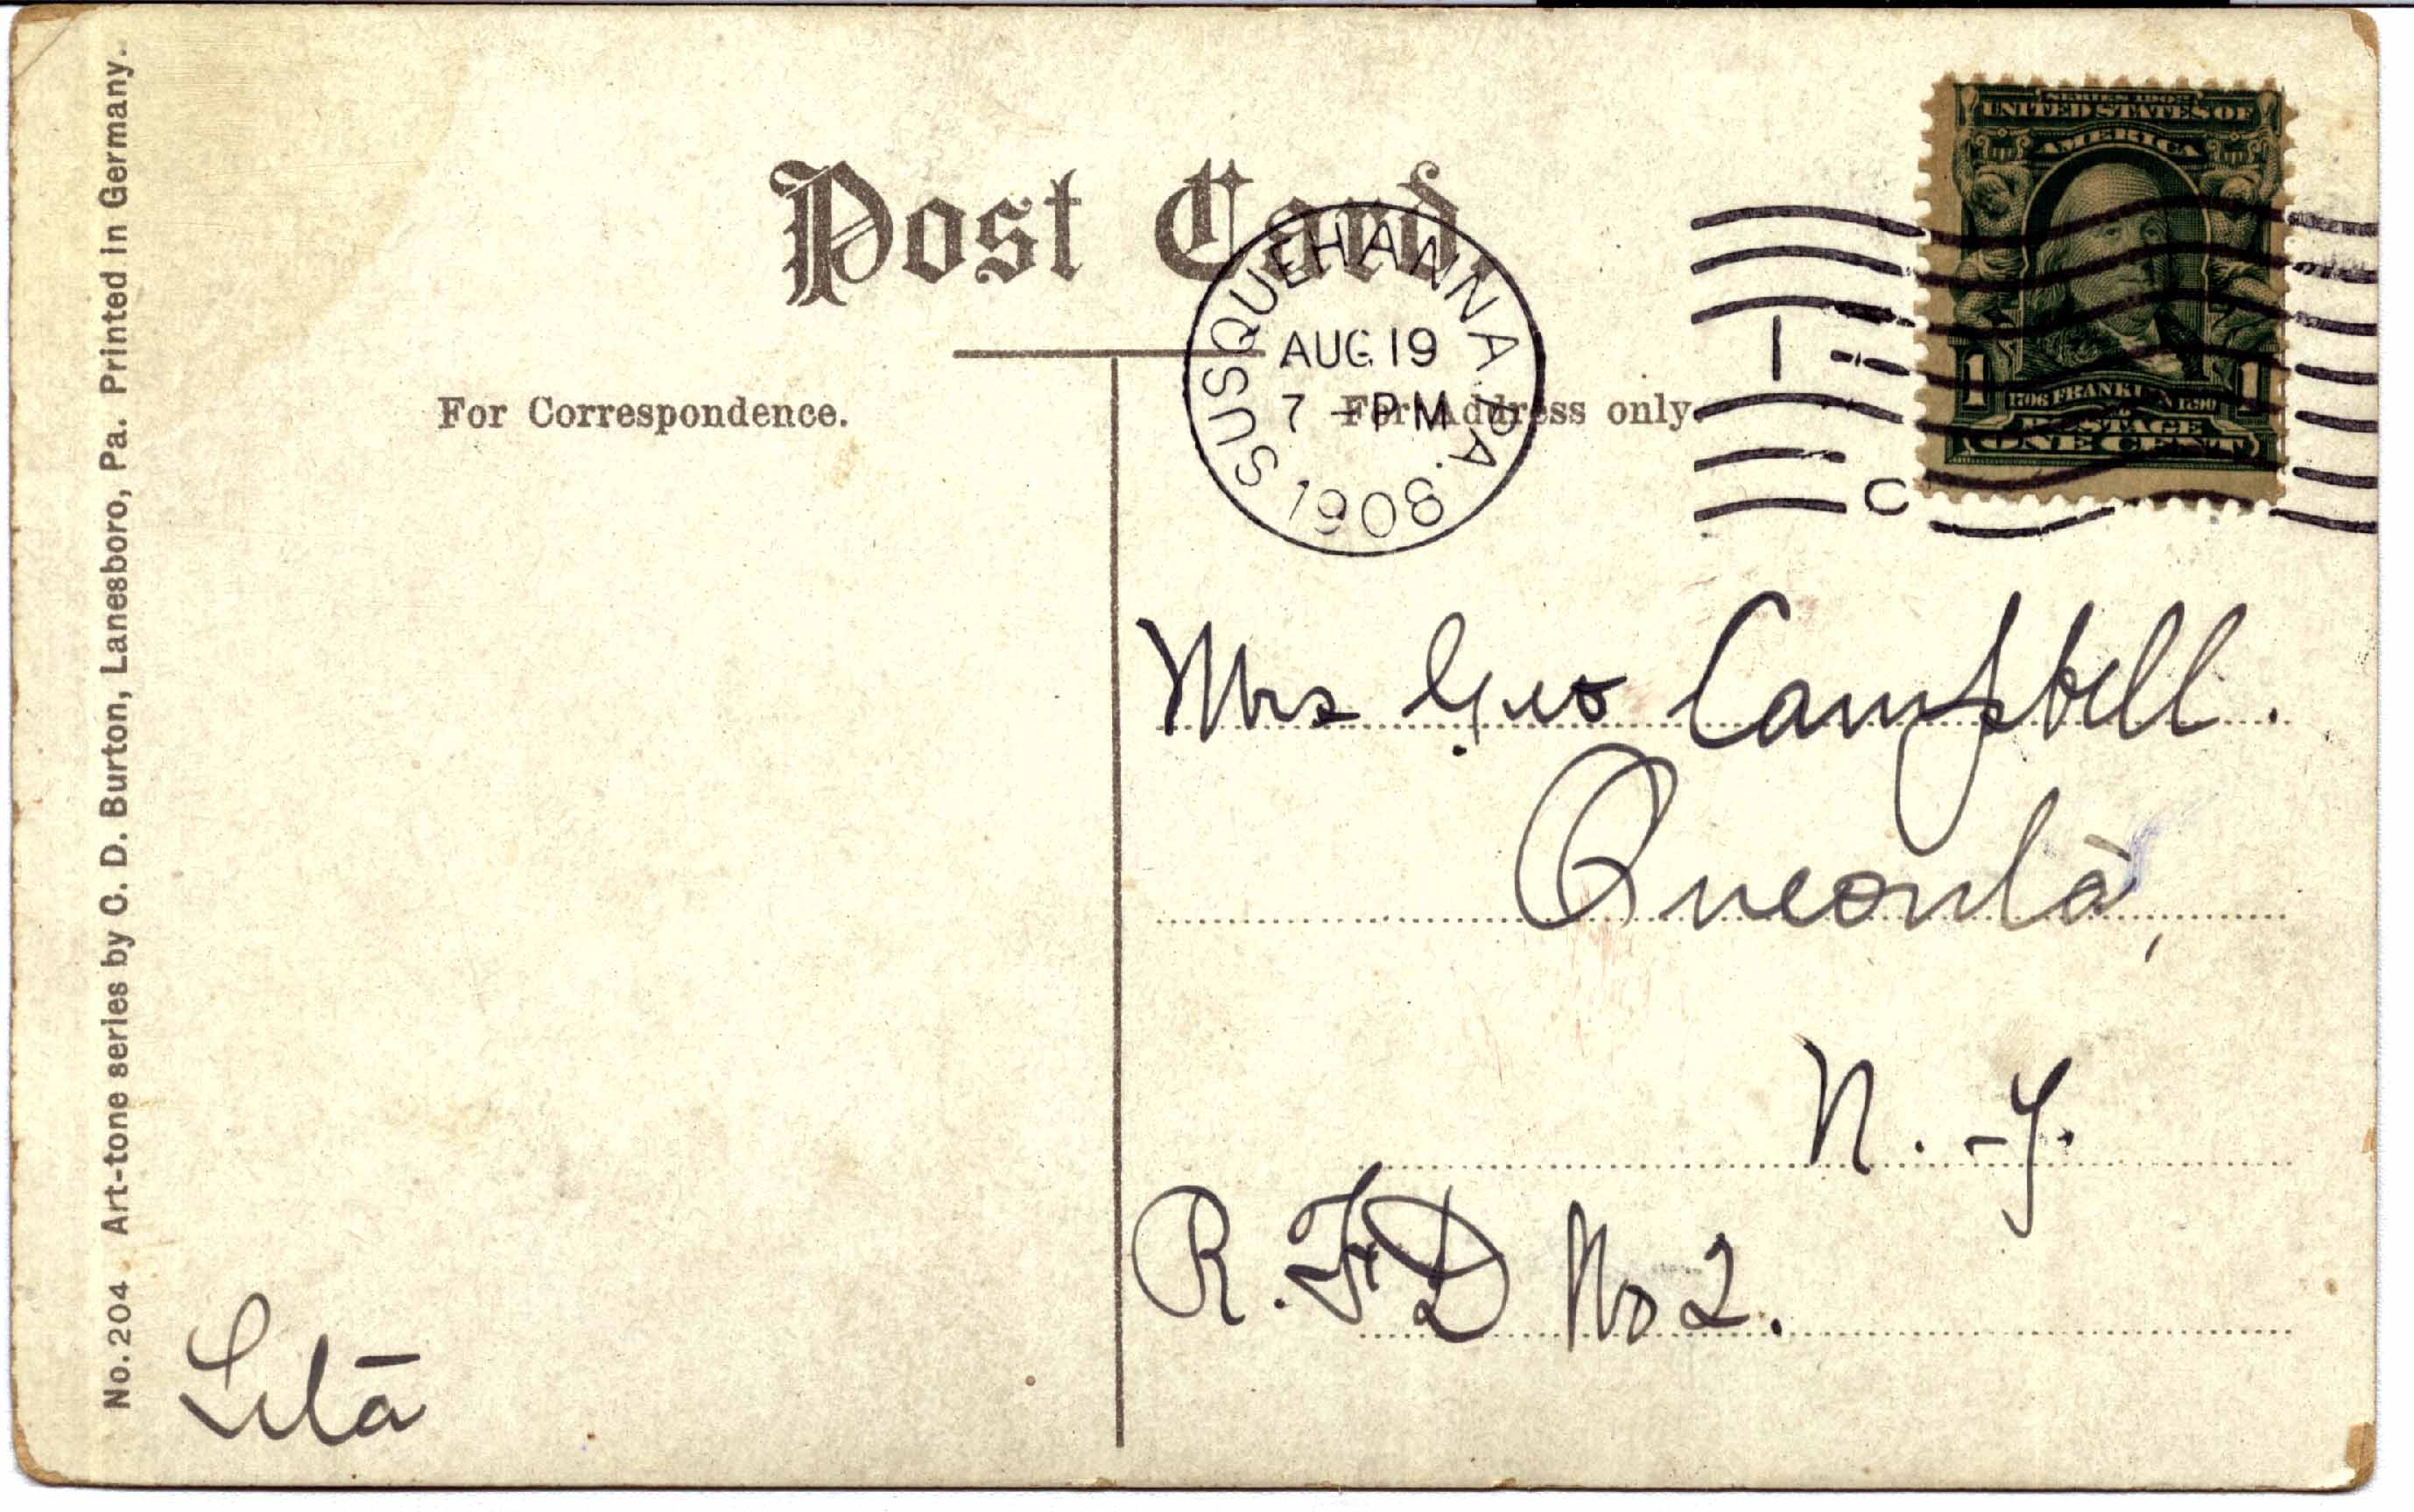 No. 204 Art-tone series by C. D. Burton, Lanesboro, Pa. Printed in Germany.
Post Card
For Correspondence.
For Address only.
SUSQUEHANNA PA.
AUG 19
7 - PM
1908
1
C
SERIES 1902
UNITED STATES OF
AMERICA
1706 FRANKLIN 1790
1 1
POSTAGE
ONE CENT
Mrs Geo Campbell.
Oneonta,
N. Y.
R. F D No 2.
Leta